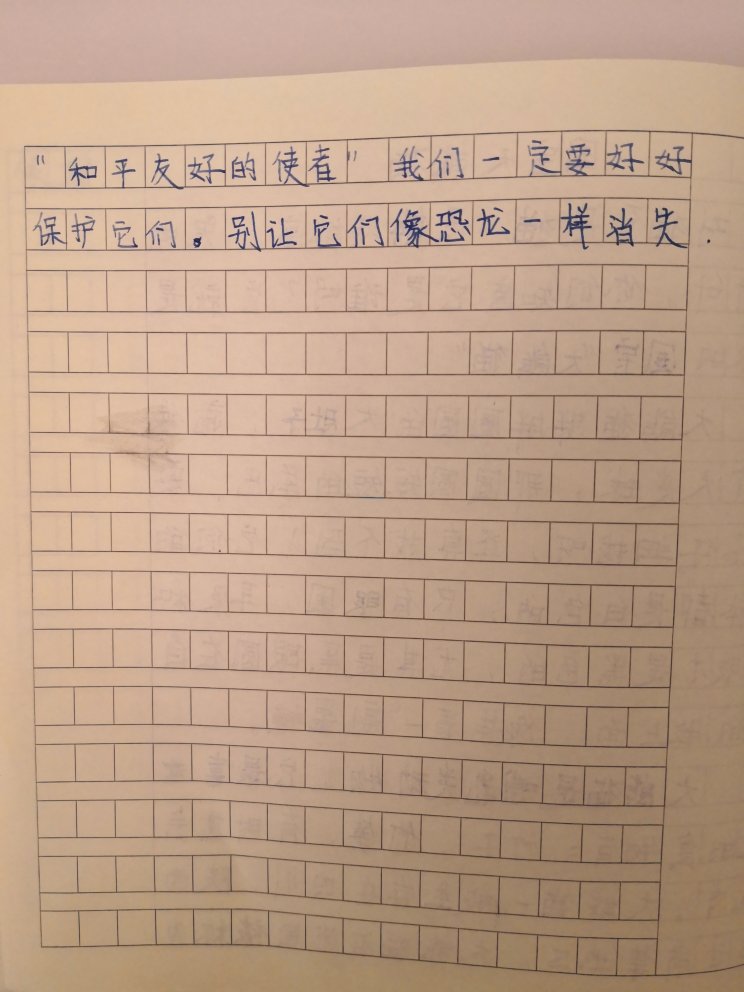 "和平友好的使者"我们一定要好好
保护它们。别让它们像恐龙一样消失.